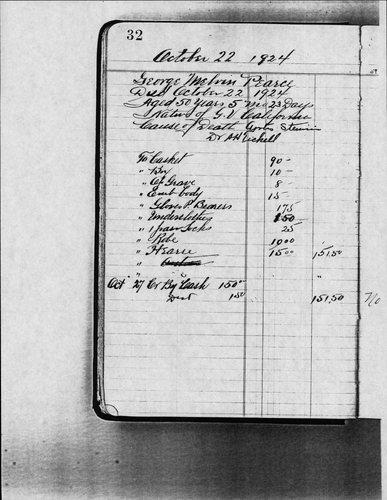 32
October 22 1924
George Melvin Pearce
Died October 22 1924
Aged 50 Years 5 Mo 23 Days
Native of G.V. California
Cause of Death Aortic Stenosis
Dr A H
To Casket 90 -
" Box 10 -
" Op Grave 8 -
" Emb body 15 -
" Gloves P. Bearers 1 75
" Underclothing 1 50
" 1 pair Socks 25
" Robe 10 00
" Hearse 15 00 151.50
"
Oct 27 Cr By Cash 150 00
Disct 1 50 151.50